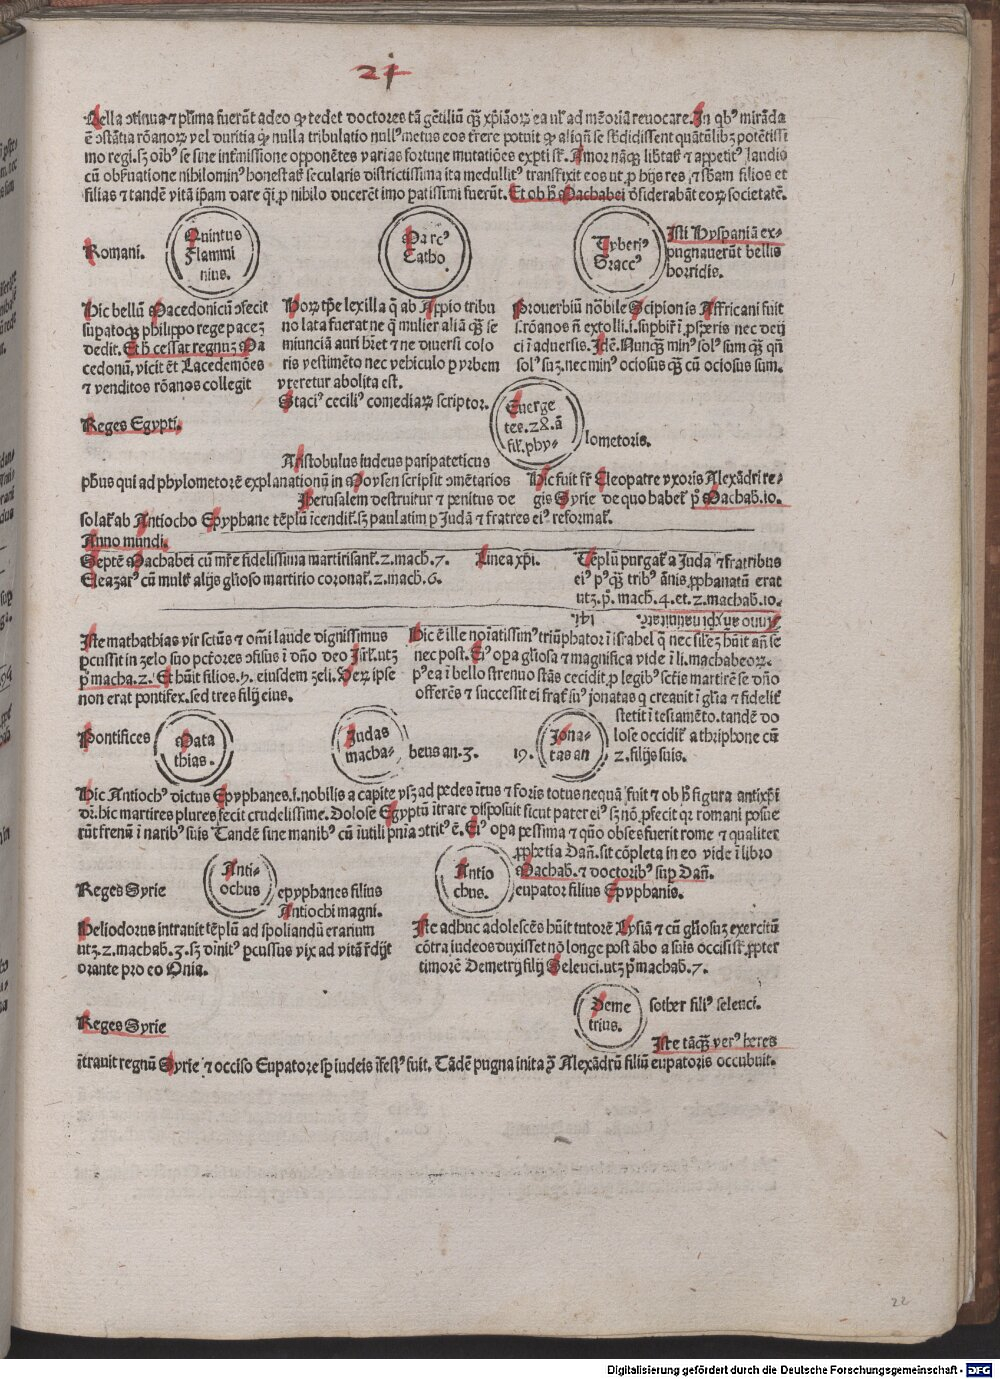 21
Bella ↄtinua ⁊ plīma fuerūt adeo ꝙ tedet doctores tā gētiliū qꝫ xp̄iaoꝝ ea ul' ad memoriā reuocare. In qb⁹ mirāda
ē ↄstātia rōanoꝝ vel duritia ꝙ nulla tribulatio null⁹ metus eos trere potuit ꝙ aliqñ se subdidissent quātūlibꝫ potētissi
mo regi. sꝫ oīb⁹ se sine intmissione opponētes varias fortune mutatiōes expti sūt. Amor nāqꝫ libtatꝭ ⁊ appetit⁹ laudis
cū obseruatione nihilomin⁹ honestatꝭ secularis districtissima ita medullit⁹ transfixit eos ut ꝓ hijs res ⁊ sbam filios et
filias ⁊ tandē vitā ipam dare qi ꝓ nihilo ducerēt imo paratissimi fuerūt. Et ob hꝭ Machabei dsiderabāt eoꝝ societatē.
Romani.
Quintus
Flammi
nius.
Marc⁹
Catho
Tyberi⁹
Gracc⁹
Isti Hyspaniā ex-
pugnauerūt bellis
horridis.
Hic bellū Macedonicū ↄfecit
supatoqꝫ philippo rege pacez
dedit. Et hꝭ cessat regnuꝫ Ma
cedonū, vicit ēt Lacedemōes
⁊ venditos rōanos collegit
Hoꝝ tp̄e lex illa q̄ ab Appio tribu
no lata fuerat ne q̄ mulier aliā qꝫ se
miunciā auri hret ⁊ ne diuersi colo
ris vestimēto nec vehiculo ꝑ vrbem
vteretur abolita est.
Staci⁹ cecili⁹ comediaꝝ scriptor.
Prouerbiū nōbile Scipionis Affricani fuit
s. rōanos ñ extolli. i. supbir ī ꝓsperis nec deij
ci ī aduersis. Idē. Nunqꝫ min⁹ sol⁹ sum qꝫ qñ
sol⁹ suꝫ. nec min⁹ ociosus qꝫ cū ociosus sum.
Reges Egypti.
Euerge
tes. 28. ā
fil. phy-
lometoris.
Aristobulus iudeus paripateticus
pb̄us qui ad phylometorē explanationū in Moysen scripsit ↄmētarios
Jherusalem destruitur ⁊ penitus de
solatꝭ ab Antiocho Epyphane tēplū īcendit. sꝫ paulatim ꝑ Judā ⁊ fratres ei⁹ reformat.
Hic fuit fr Cleopatre vxoris Alexādri re-
gis Syrie de quo habet p⁹ Machab. 10.
Anno mundi.
Septē Machabei cū mre fidelissima martirisant. 2. mach. 7.
Eleazar⁹ cū mult alijs glioso martirio coronat. 2. mach. 6.
Linea xp̄i.
Tēplū purgat a Juda ⁊ fratribus
ei⁹ p⁹qꝫ trib⁹ ānis ꝓphanatū erat
utꝫ. p⁹. mach. 4. et. 2. machab. 10.
Anno an̄ xp̄i natiuitatē. 141.
Iste mathathias vir sctūs ⁊ omī laude dignissimus
ꝑcussit in zelo suo pctores ↄfisus ī dño deo Isrl. utꝫ
p⁹ macha. 2. Et hūit filios. 5. eiusdem zeli. Veꝝ ipse
non erat pontifex. sed tres filij eius.
Hic ē ille noiatissim⁹ triūphator ī israhel q̄ nec silēꝫ hūit añ se
nec post. Ei⁹ opa gliosa ⁊ magnifica vide ī li. machabeoꝝ.
p⁹ ea ī bello strenuo stās cecidit ꝓ legib⁹ sctis martirē se dño
offerēs ⁊ successit ei frat su⁹ jonatas q̄ creauit ī glia ⁊ fidelit
stetit ī testamēto. tandē do
lose occidit a thriphone cū
2. filijs suis.
Pontifices
Mata
thias.
Judas
macha-
beus an. 3.
19.
Jona-
tas an
Hic Antioch⁹ dictus Epyphanes. i. nobilis a capite ysꝫ ad pedes ītus ⁊ foris totus nequā fuit ⁊ ob hꝭ figura antixp̄i
dr. hic martires plures fecit crudelissime. Dolose Egyptū itrare disposuit sicut pater ei⁹ sꝫ nō ꝓfecit qr romani posue
rūt frenū ī narib⁹ suis Tandē sine manib⁹ cū īutili pnia ↄtrit⁹ ē. Ei⁹ opa pessima ⁊ quō obses fuerit rome ⁊ qualiter
ꝓphetia Dañ. sit cōpleta in eo vide ī libro
Machab. ⁊ doctorib⁹ sup Dañ.
Reges Syrie
Anti-
ochus
epyphanes filius
Antiochi magni.
Antio
chus.
eupator filius Epyphanis.
Heliodorus intrauit tēplū ad spoliandū erarium
utꝫ. 2. machab. 3. sꝫ diuīnit⁹ ꝑcussus vix ad vitā rdijt
orante pro eo Onia.
Iste adhuc adolescēs hūit tutorē Lysiā ⁊ cū glioso exercitū
cōtra iudeos duxisset nō longe post ābo a suis occisi sūt. ꝓpter
timorē Demetrij filij Seleuci. utꝫ p⁹ machab. 7.
Reges Syrie
Deme
trius.
sother fili⁹ seleuci.
Iste tāqꝫ ver⁹ heres
ītrauit regnū Syrie ⁊ occiso Eupatore sp iudeis īfest⁹ fuit. Tādē pugna inita ꝯ Alexādrū filiū eupatoris occubuit.
22
Digitalisierung gefördert durch die Deutsche Forschungsgemeinschaft - DFG